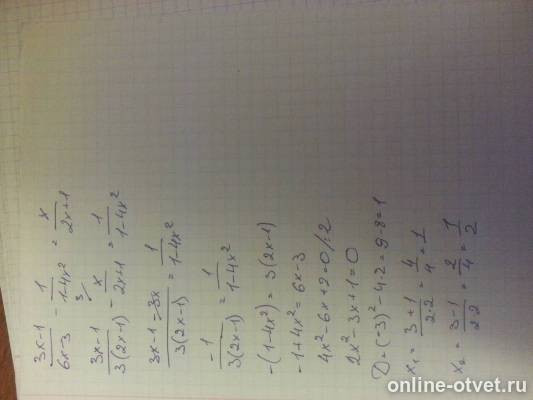 (3x-1)/(6x-3) - 1/(1-4x²) = x/(2x+1)
(3x-1)/(3(2x-1)) - x/(2x+1) = 1/(1-4x²)
(3x-1-3x)/(3(2x-1)) = 1/(1-4x²)
-1/(3(2x-1)) = 1/(1-4x²)
-(1-4x²) = 3(2x-1)
-1+4x² = 6x-3
4x²-6x+2=0/:2
2x²-3x+1=0
D=(-3)²-4·2=9-8=1
x₁ = (3+1)/(2·2) = 4/4 = 1
x₂ = (3-1)/(2·2) = 2/4 = 1/2
online-otvet.ru